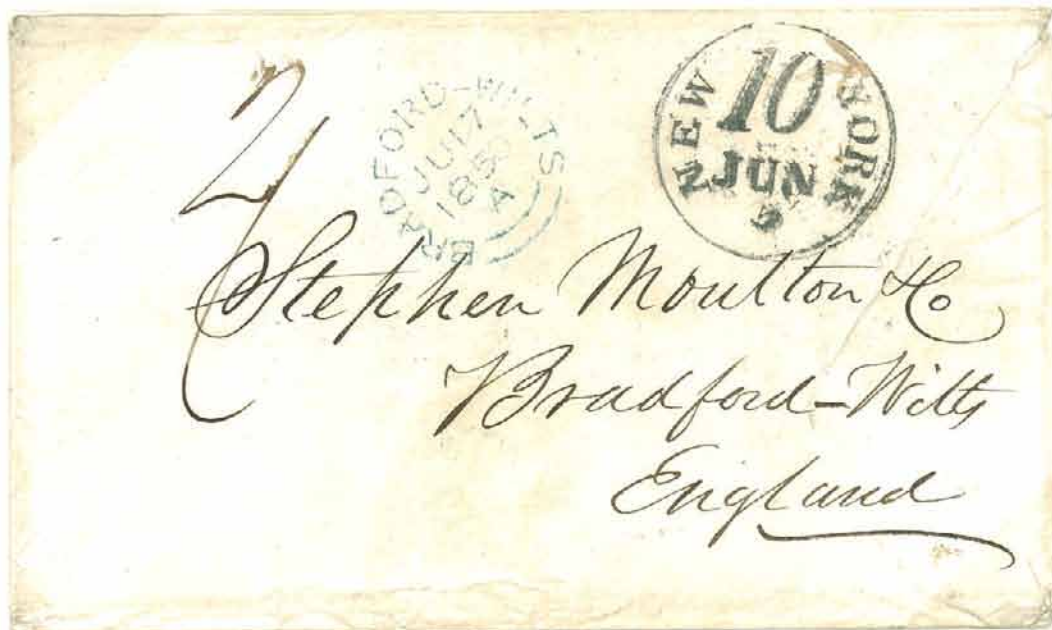 BRADFORD-WILTS
JU 17
1850
A
NEW YORK
10
JUN
5
Stephen Moulton & Co
Bradford-Wilts
England